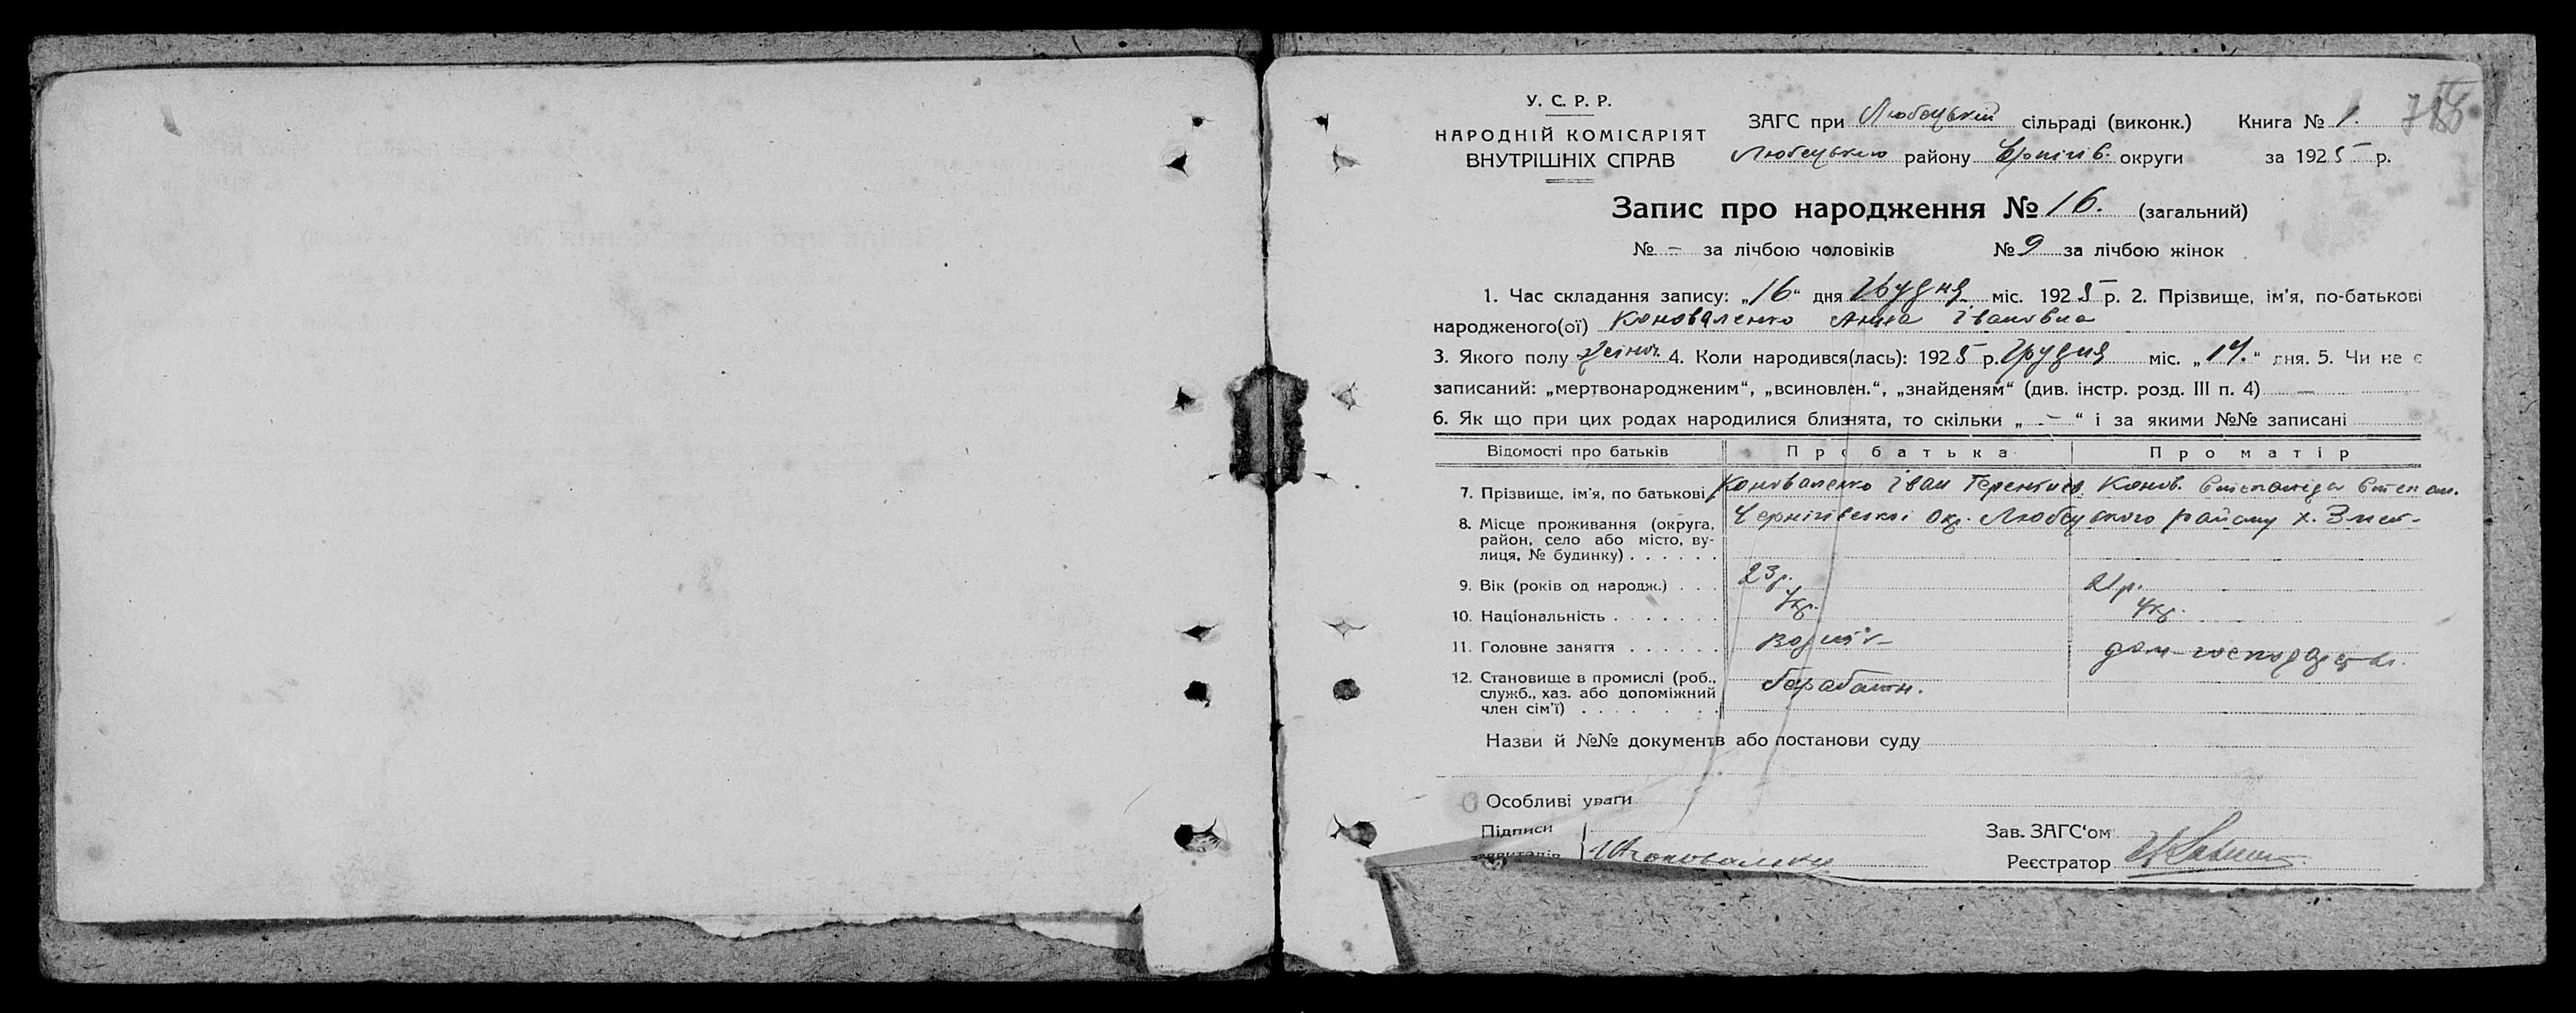 У. С. Р. Р.
НАРОДНІЙ КОМІСАРІЯТ
ВНУТРІШНІХ СПРАВ
ЗАГС при Любецькій сільраді (виконк.) Книга № 1.
Любецького району Чернігів. округи за 1925 р.
Запис про народження № 16. (загальний)
№ – за лічбою чоловіків № 9 за лічбою жінок
1. Час складання запису: „16“ дня Грудня міс. 1925 р. 2. Прізвище, ім'я, по-батькові
народженого(ої) Коноваленко Анна Івановна
3. Якого полу жіноч. 4. Коли народився(лась): 1925 р. Грудня міс. „14.“ дня. 5. Чи не є
записаний: „мертвонародженим“, „всиновлен.“, „знайденям“ (див. інстр. розд. III п. 4) —
6. Як що при цих родах народилися близнята, то скільки „ – “ і за якими №№ записані
Відомості про батьків Про батька Про матір
7. Прізвище, ім'я, по батькові Коноваленко Іван Терентиев. Конов. Степан.
8. Місце проживання (округа, район, село або місто, вулиця, № будинку) Чернігівської Окр. Любецького району х.
9. Вік (років од народж.) 23р. 21р.
10. Національність Укр. Укр.
11. Головне заняття дом-господарств.
12. Становище в промислі (роб., служб., хаз. або допоміжний член сім'ї)
Назви й №№ документів або постанови суду
Особливі уваги
Підписи
Зав. ЗАГС'ом
Коноваленко
Реєстратор